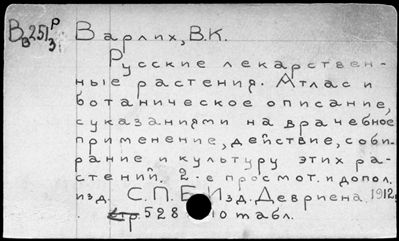 Вв251 р/3 Варлих, В.К.
Русские лекарствен-
ные растения. Атлас и
ботаническое описание,
с указаниями на врачебное
применение, действие, соби-
рание и культуру этих ра-
стений. 2-е просмот. и допол.
изд. С.П.Б. Изд. Девриена, 1912,
стр 528 10 табл.